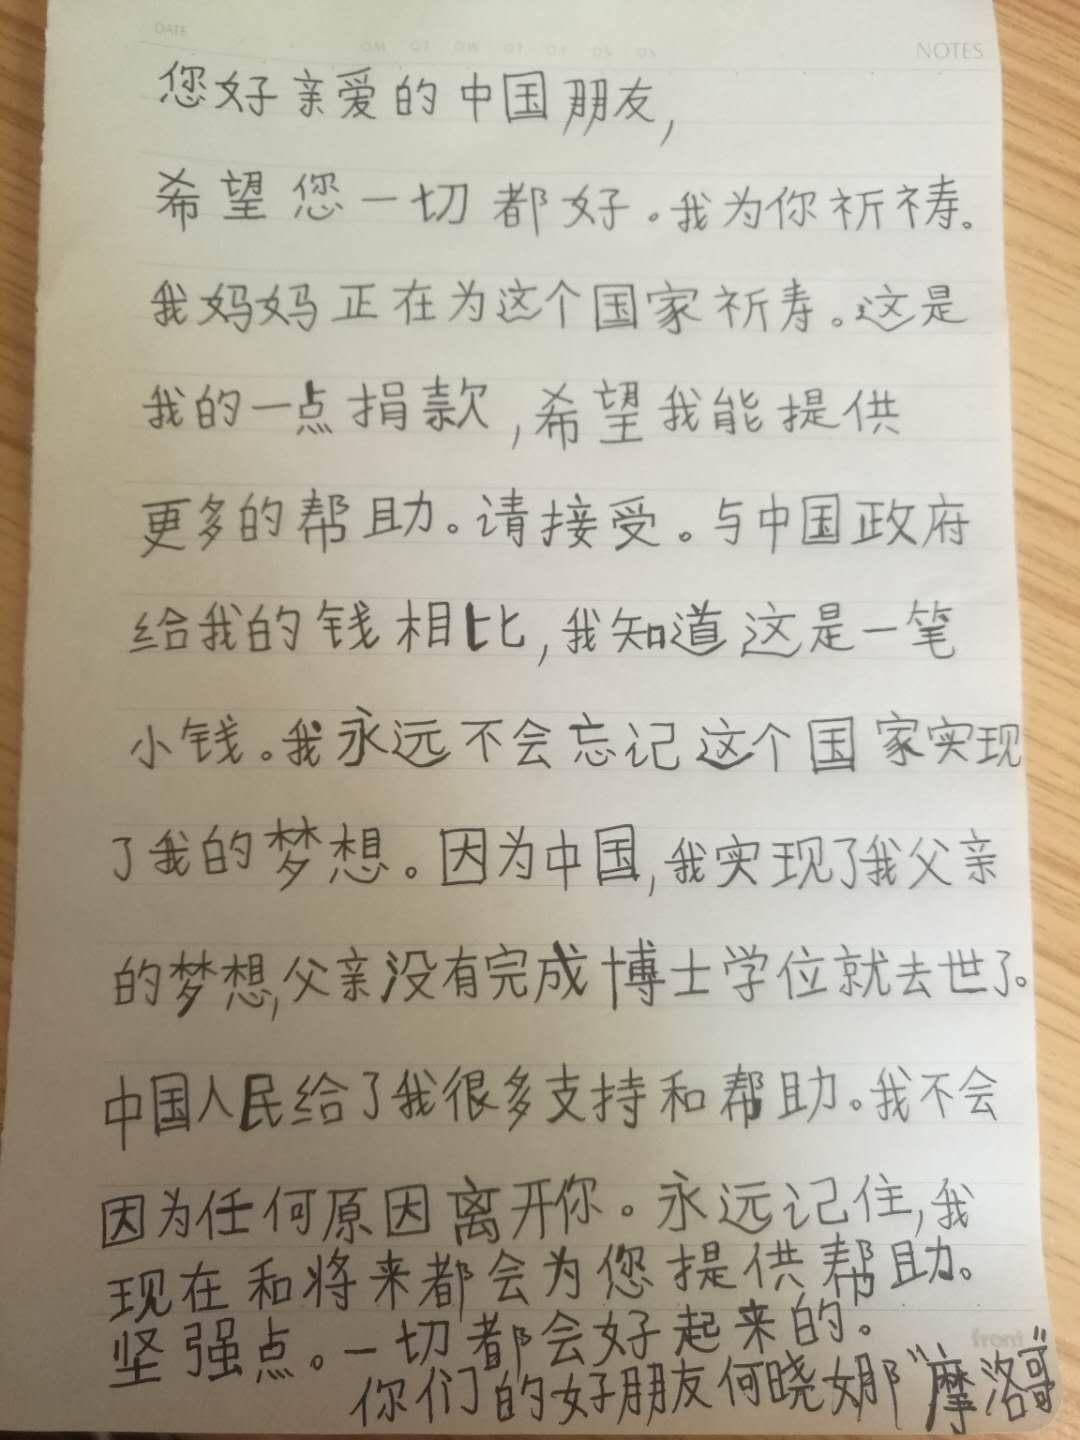 DATE
NOTES
您好亲爱的中国朋友,
希望您一切都好。我为你祈祷。
我妈妈正在为这个国家祈寿。这是
我的一点捐款,希望我能提供
更多的帮助。请接受。与中国政府
给我的钱相比,我知道这是一笔
小钱。我永远不会忘记这个国家实现
了我的梦想。因为中国,我实现了我父亲
的梦想,父亲没有完成博士学位就去世了。
中国人民给了我很多支持和帮助。我不会
因为任何原因离开你。永远记住,我
现在和将来都会为您提供帮助。
坚强点。一切都会好起来的。
front
你们的好朋友何晓娜"摩洛哥"